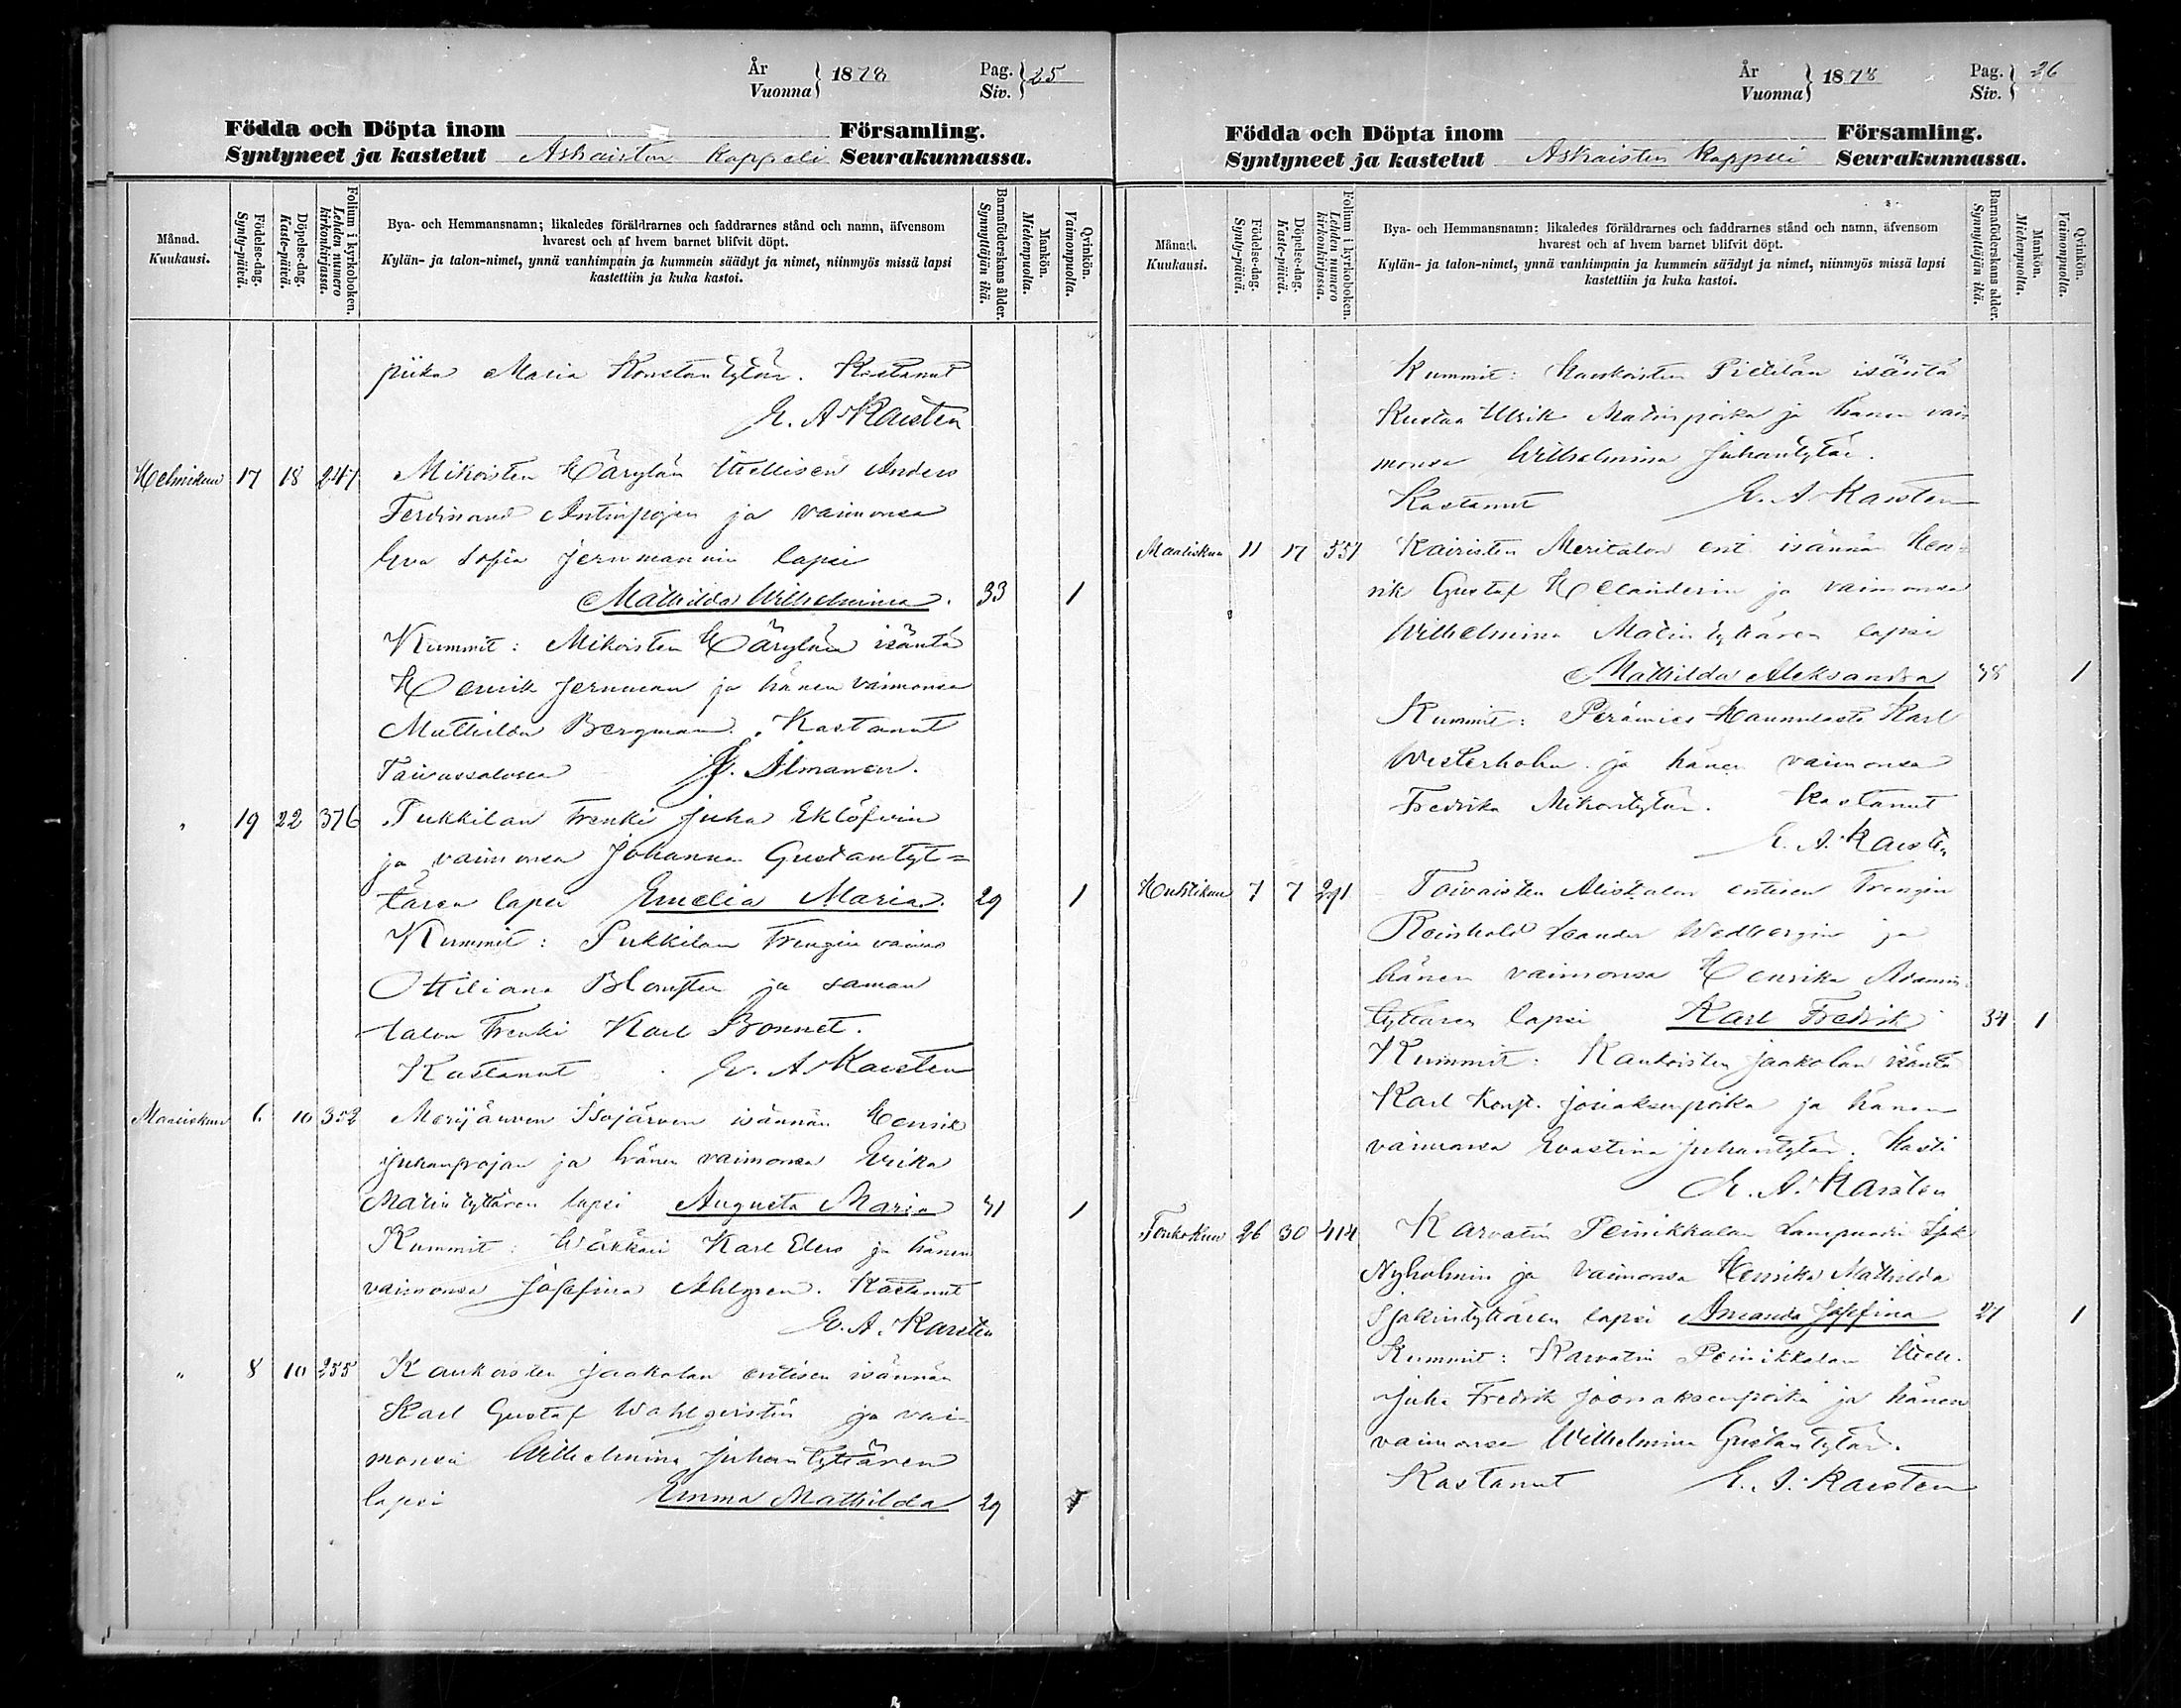 År
Vuonna } 1878
Pag.
Siv. } 25
Födda och Döpta inom Församling.
Syntyneet ja kastetut Askaisten kappeli Seurakunnassa.
Månad.
Kuukausi.
Födelse-dag.
Synty-päivä.
Döpelse-dag.
Kaste-päivä.
Folium i kyrkoboken.
Lehden numero
kirkonkirjassa.
Bya- och Hemmansnamn; likaledes föräldrarnes och faddrarnes stånd och namn, äfvensom
hvarest och af hvem barnet blifvit döpt.
Kylän- ja talon-nimet, ynnä vanhimpain ja kummein säädyt ja nimet, niinmyös missä lapsi
kastettiin ja kuka kastoi.
Barnaföderskans ålder.
Synnyttäjän ikä.
Mankön.
Miehenpuolta.
Qvinkön.
Vaimonpuolta.
piika Maria Konstantytär. Kastanut
E. A. Karsten
Helmikuu 17 18 247 Mikoisten Härylän Anders
Ferdinand Antinpojan ja vaimonsa
Eva Sofia Jernmannin lapsi
Mathilda Wilhelmina. 33 1
Kummit: Mikoisten Härylän isäntä
Henrik Jernman ja hänen vaimonsa
Mathilda Bergman. Kastanut
Taivassalossa J. Ilmanen.
" 19 22 376 Pukkilan Trenki Juha Eklöfvin
ja vaimonsa Johanna Gustantyt=
tären lapsi Emelia Maria. 29 1
Kummit: Pukkilan Trengin vaimo
Ottiliana Blomster ja saman
talon Trenki Karl Bonnet.
Kastanut E. A. Karsten
Maaliskuu 6 10 352 Merijärven Isojärven isännän Henrik
Juhanpojan ja hänen vaimonsa Erika
Matintyttären lapsi Augusta Maria 41 1
Kummit: Karl Elers ja hänen
vaimonsa Josefina Ahlgren. Kastanut
E. A. Karsten
" 8 10 255 Kaukoisten Jaakolan entisen isännän
Karl Gustaf Wahlqvistin ja vai-
monsa Wilhelmina Juhantyttären
lapsi Emma Mathilda 29 1
År
Vuonna } 1878
Pag.
Siv. } 26
Födda och Döpta inom Församling.
Syntyneet ja kastetut Askaisten kappeli Seurakunnassa.
Månad.
Kuukausi.
Födelse-dag.
Synty-päivä.
Döpelse-dag.
Kaste-päivä.
Folium i kyrkoboken.
Lehden numero
kirkonkirjassa.
Bya- och Hemmansnamn; likaledes föräldrarnes och faddrarnes stånd och namn, äfvensom
hvarest och af hvem barnet blifvit döpt.
Kylän- ja talon-nimet, ynnä vanhimpain ja kummein säädyt ja nimet, niinmyös missä lapsi
kastettiin ja kuka kastoi.
Barnaföderskans ålder.
Synnyttäjän ikä.
Mankön.
Miehenpuolta.
Qvinkön.
Vaimonpuolta.
Kummit: Kaukoisten Pietilän isäntä
Kustaa Ulrik Matinpoika ja hänen vai-
monsa Wilhelmina Juhantytär.
Kastanut E. A. Karsten
Maaliskuu 11 17 557 Kairisten Meritalon ent. isännän Hen-
rik Gustaf Helanderin ja vaimonsa
Wilhelmina Matintyttären lapsi
Mathilda Aleksandra 38 1
Kummit: Perämies Karl
Westerholm ja hänen vaimonsa
Fredrika Mikontytär. Kastanut
E. A. Karsten
Huhtikuu 7 7 291 Toivaisten Alistalon entisen Trengin
Reinhold Leander Wedbergin ja
hänen vaimonsa Henrika Adamin-
tyttären lapsi Karl Fredrik 34 1
Kummit: Kaukoisten Jaakolan isäntä
Karl Konst. Josiaksenpoika ja hänen
vaimonsa Evastina Juhantytär. Kasti
E. A. Karsten
Toukokuu 26 30 414 Karvatin Peinikkalan
Nyholmin ja vaimonsa Henrika Mathilda
lapsi Amanda Josefina 21 1
Kummit: Karvatin Peinikkalan
Juha Fredrik Joonaksenpoika ja hänen
vaimonsa Wilhelmina Gustantytär.
Kastanut E. A. Karsten